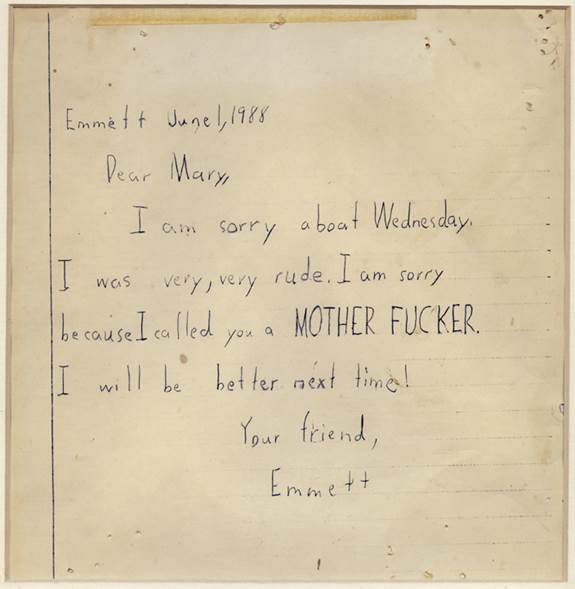 Emmett June 1, 1988
Dear Mary,
I am sorry about Wednesday.
I was very, very rude. I am sorry
because I called you a MOTHER FUCKER.
I will be better next time!
Your friend,
Emmett